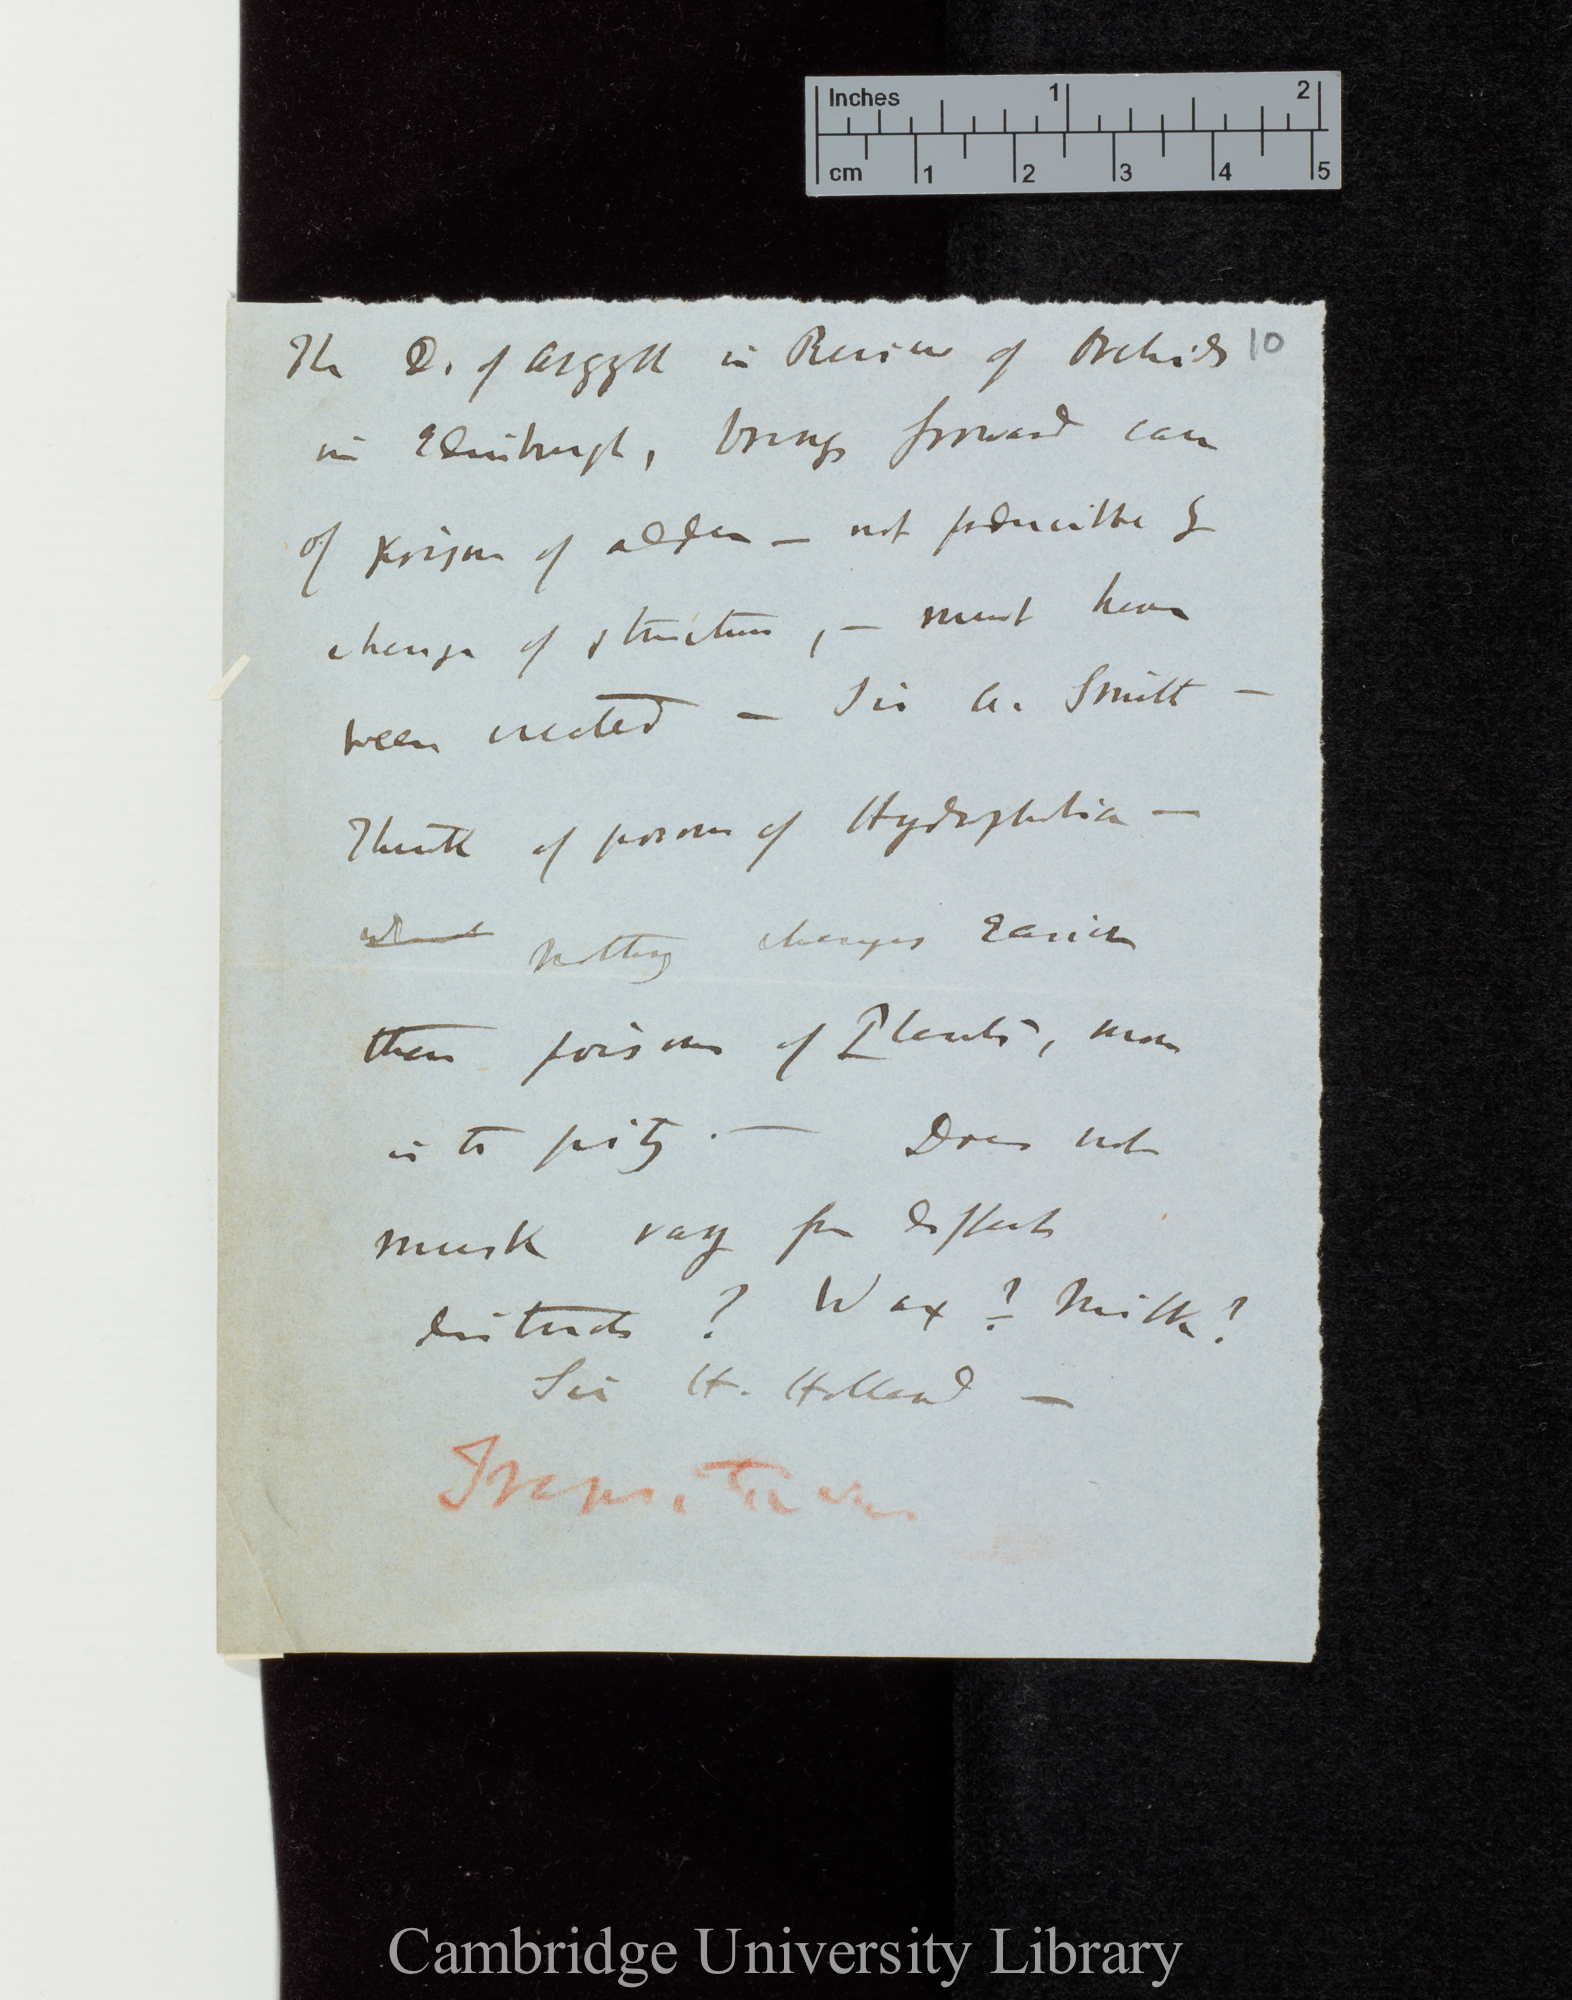 Inches 1 2
cm 1 2 3 4 5
10
The D. of Argyll in Review of Orchids
in Edinburgh, brings forward case
of poison of adder — not producible by
change of structure, — must have
been created — Sir A. Smith —
Think of poison of Hydrophobia —
nothing changes easier
than poisons of Plants, more
is to pity. — Does not
musk vary for different
districts? Wax? Milk?
Sir H. Holland —
Transitions
Cambridge University Library